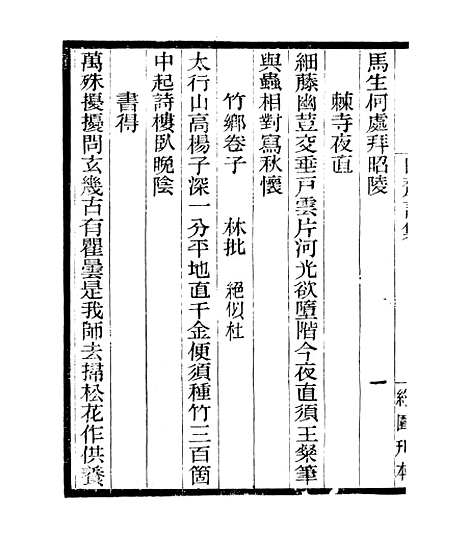 馬生何處拜昭陵
棘寺夜直
細藤幽荳交垂戸雲片河光欲墮階今夜直須王粲筆
與蟲相對寫秋懷
竹鄉卷子　林批　絕似杜
太行山高楊子深一分平地直千金便須種竹三百箇
中起詩樓臥晚陰
書得
萬殊擾擾問玄幾古有瞿曇是我師去掃松花作供養
一
刊本